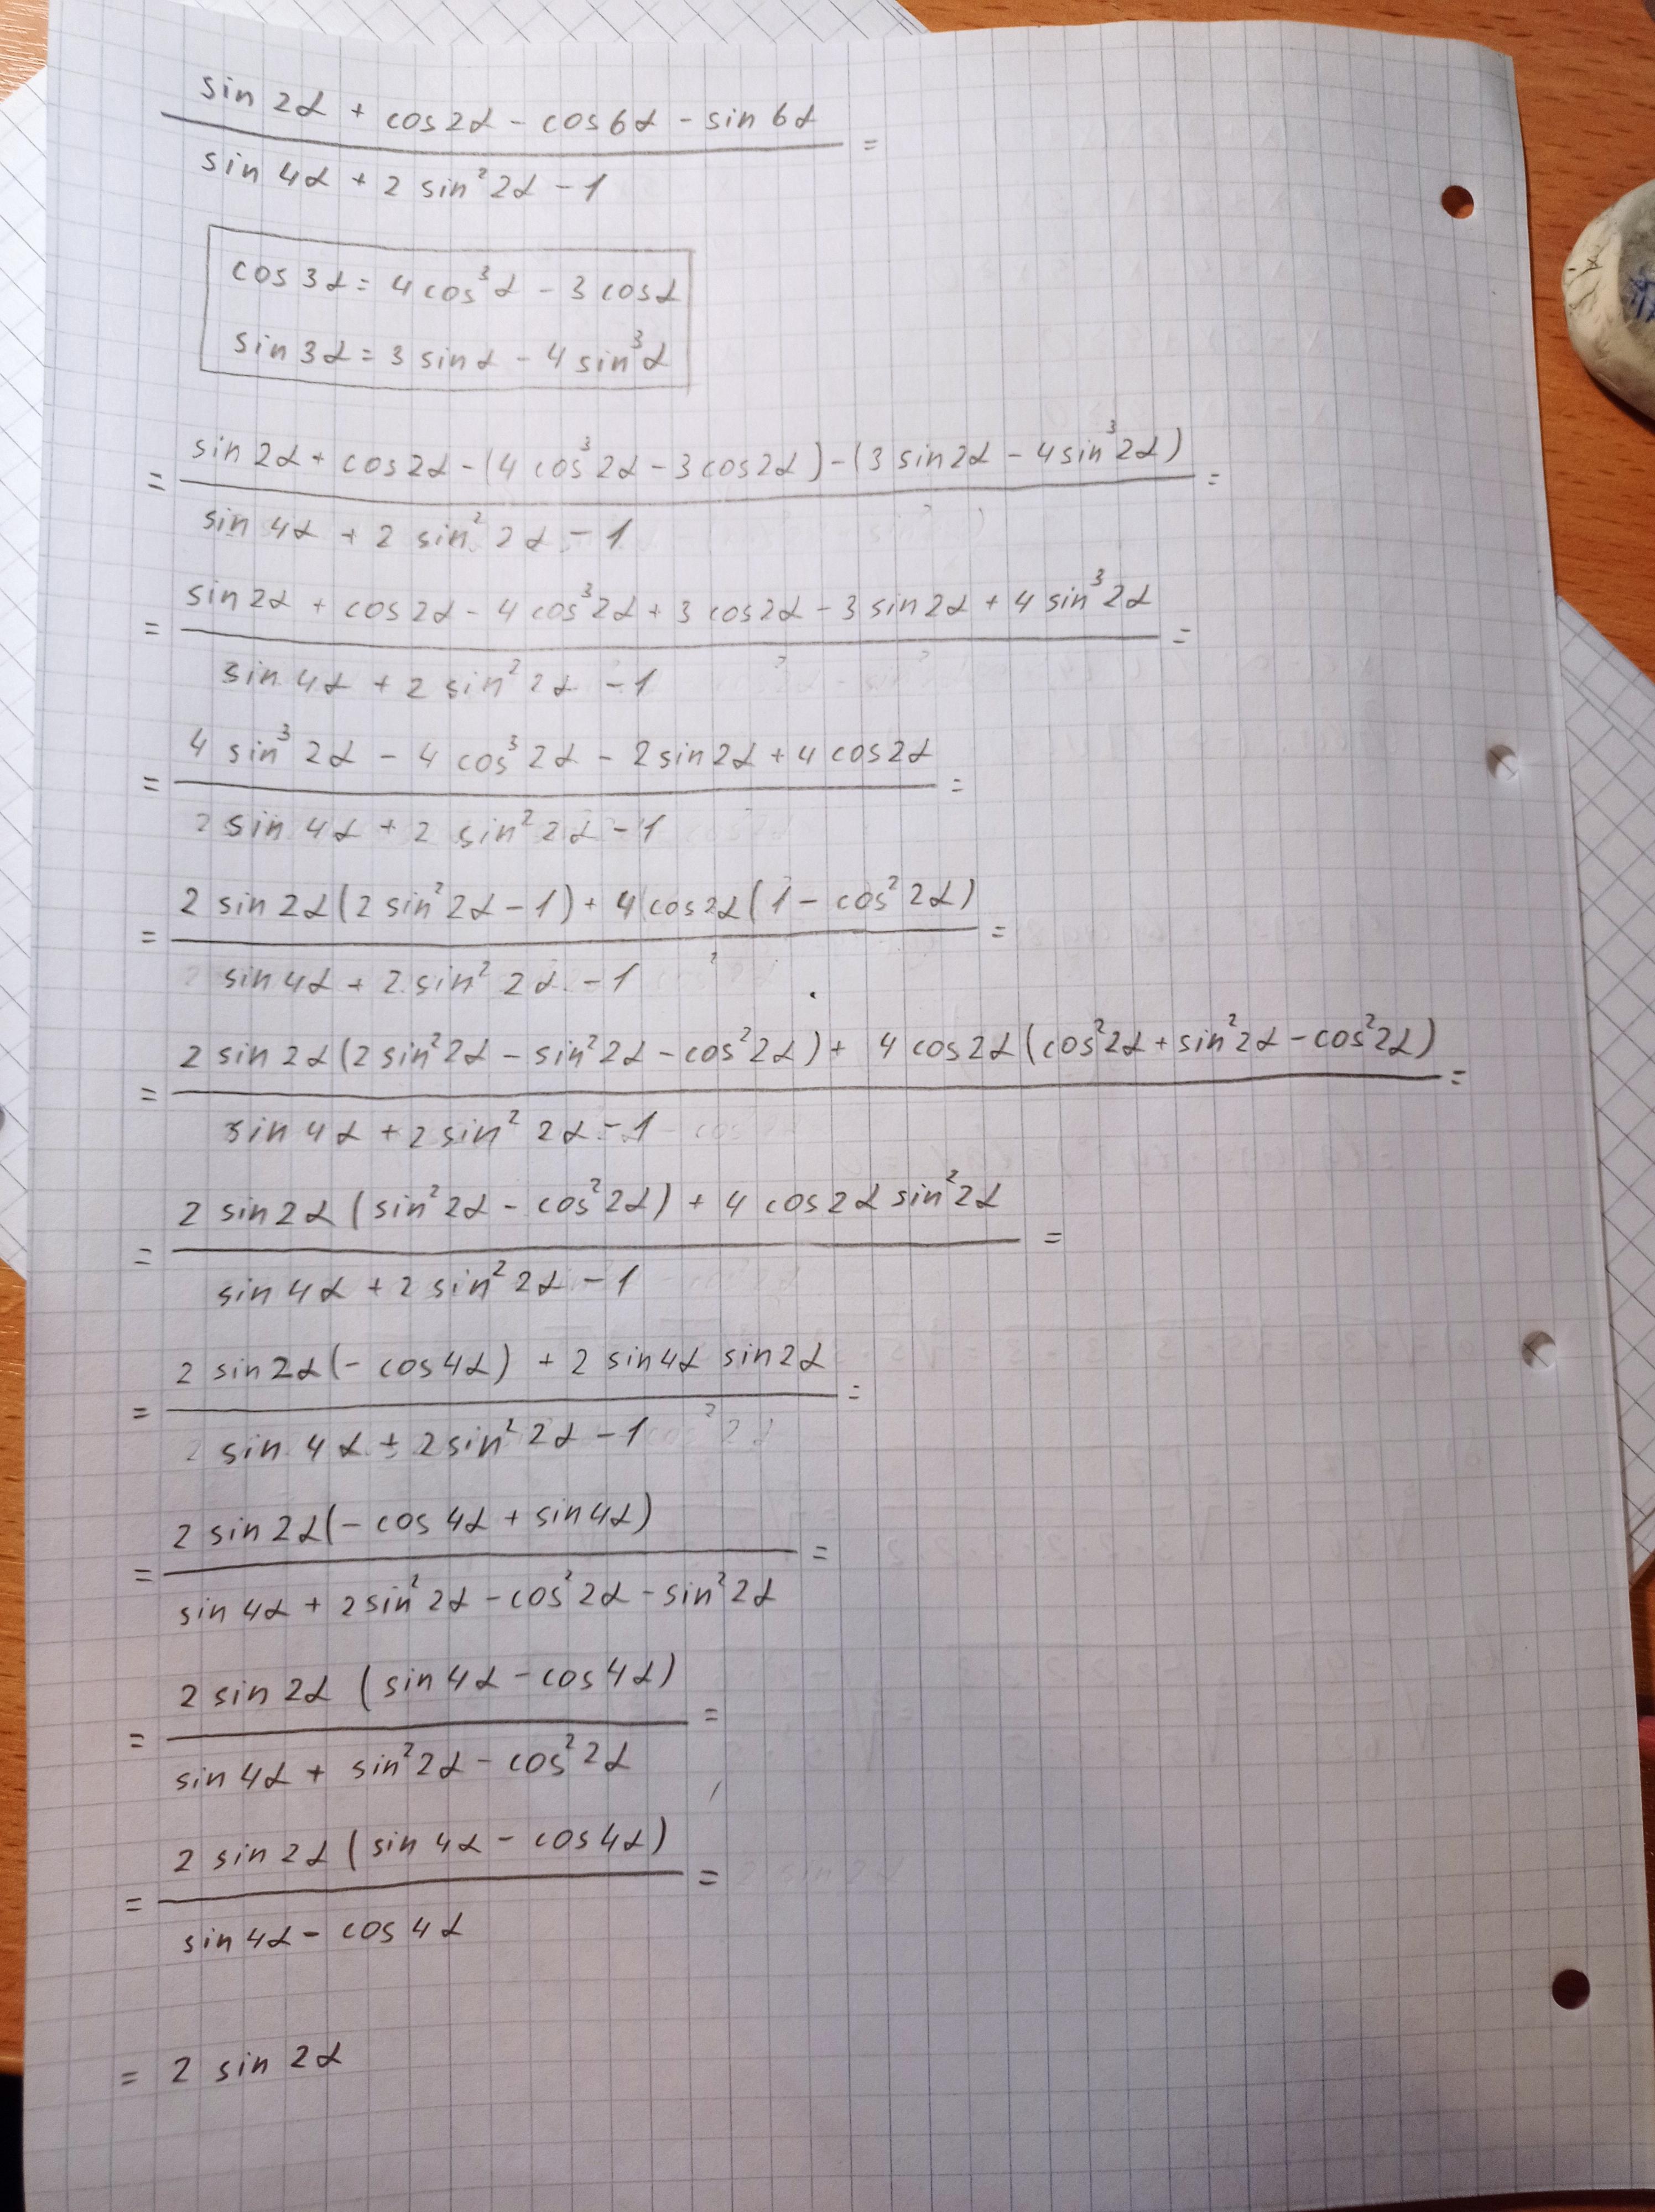 sin 2α + cos2α - cos6α - sin 6α =
sin 4α + 2 sin² 2α - 1
cos 3α = 4 cos³α - 3 cosα
sin 3α = 3 sinα - 4 sin³α
= sin 2α + cos2α - (4 cos³2α - 3cos2α) - (3 sin2α - 4sin³2α) =
sin 4α + 2 sin² 2α - 1
= sin 2α + cos2α - 4 cos³2α + 3 cos2α - 3 sin2α + 4 sin³2α =
sin 4α + 2 sin² 2α - 1
= 4 sin³ 2α - 4 cos³ 2α - 2sin2α + 4 cos2α =
sin 4α + 2 sin² 2α - 1
= 2 sin 2α(2 sin²2α - 1) + 4 cos2α(1 - cos² 2α) =
sin 4α + 2 sin² 2α - 1
= 2 sin 2α(2 sin²2α - sin²2α - cos²2α) + 4 cos2α(cos²2α + sin²2α - cos²2α) =
sin 4α + 2 sin² 2α - 1
= 2 sin 2α (sin²2α - cos²2α) + 4 cos2α sin²2α =
sin 4α + 2 sin² 2α - 1
= 2 sin2α(- cos4α) + 2 sin4α sin2α =
sin 4α + 2sin² 2α - 1
= 2 sin 2α(- cos 4α + sin4α) =
sin 4α + 2sin² 2α - cos² 2α - sin² 2α
= 2 sin 2α (sin 4α - cos4α) =
sin 4α + sin²2α - cos² 2α
= 2 sin 2α (sin 4α - cos4α) =
sin 4α - cos 4α
= 2 sin 2α